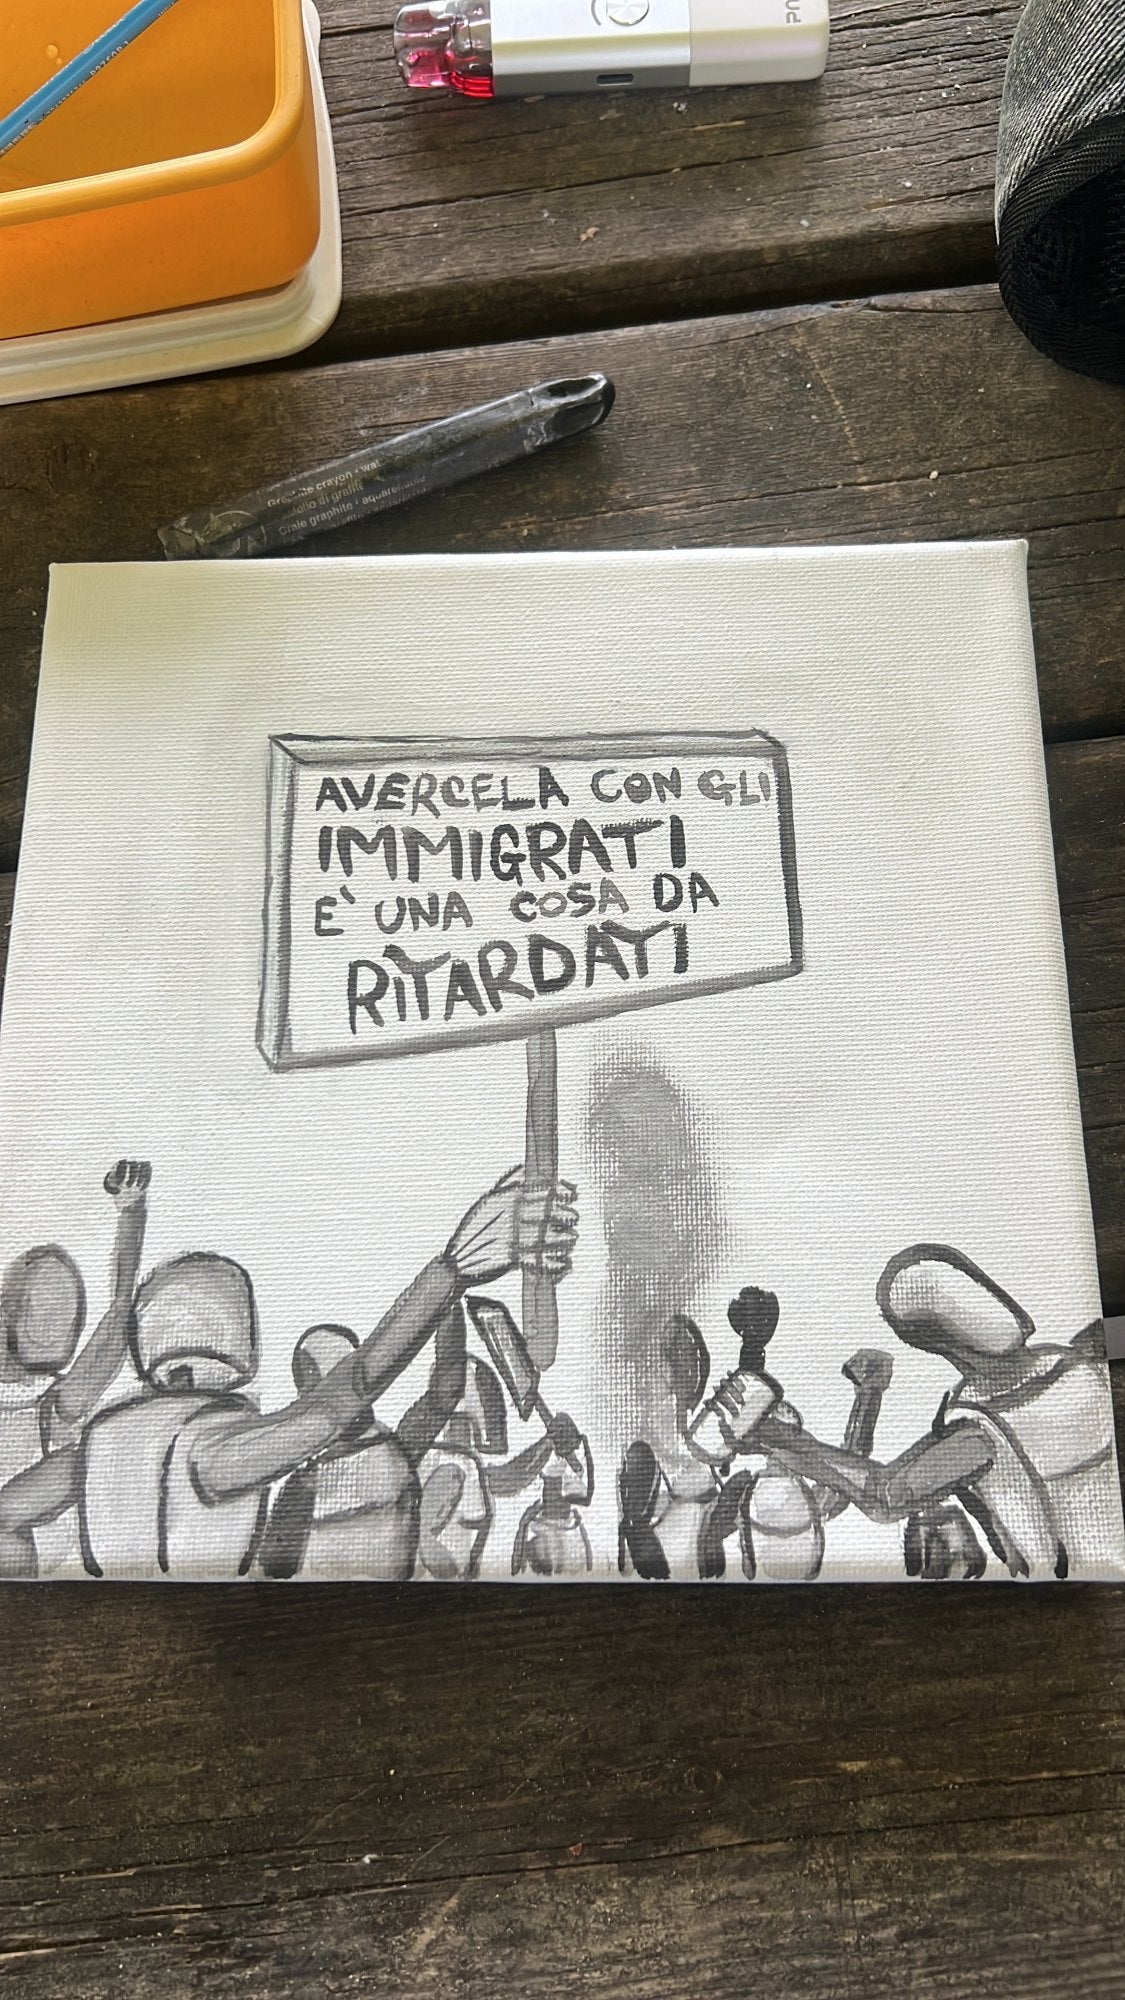 Graphite crayon • wat
olio di grafite
Craie graphite • aquarellable
AVERCELA CON GLI
IMMIGRATI
E' UNA COSA DA
RITARDATI